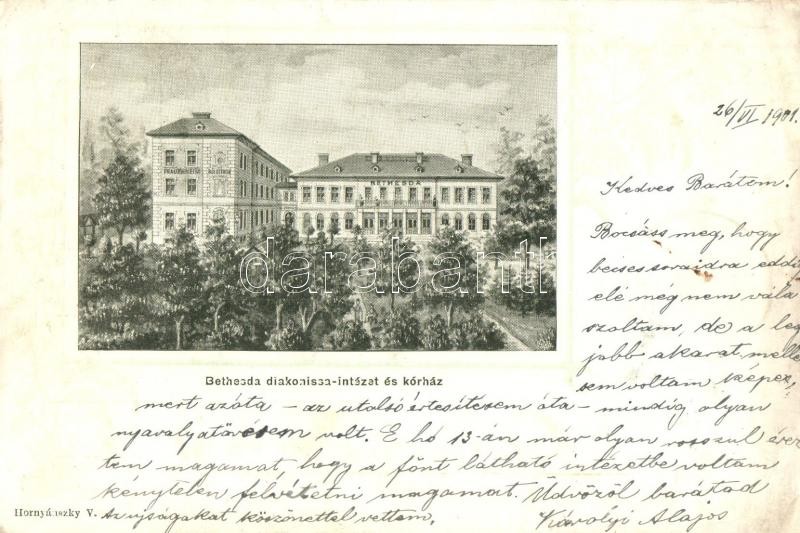 26/VI 1901.
BETHESDA
darabanth
Kedves Barátom!
Bocsáss meg, hogy
becses soraidra eddig
elé még nem vála
szoltam, de a leg
jobb akarat mellett
sem voltam képes,
Bethesda diakonissa-intézet és kórház
mert azóta – az utolsó értesítésem óta – mindig olyan
nyavalyatörésem volt. E hó 13-án már olyan rosszul érez
tem magamat, hogy a fönt látható intézetbe voltam
kénytelen felvétetni magamat. Üdvözöl barátod
Hornyánszky V. Az ujságokat köszönettel vettem.
Károlyi Alajos